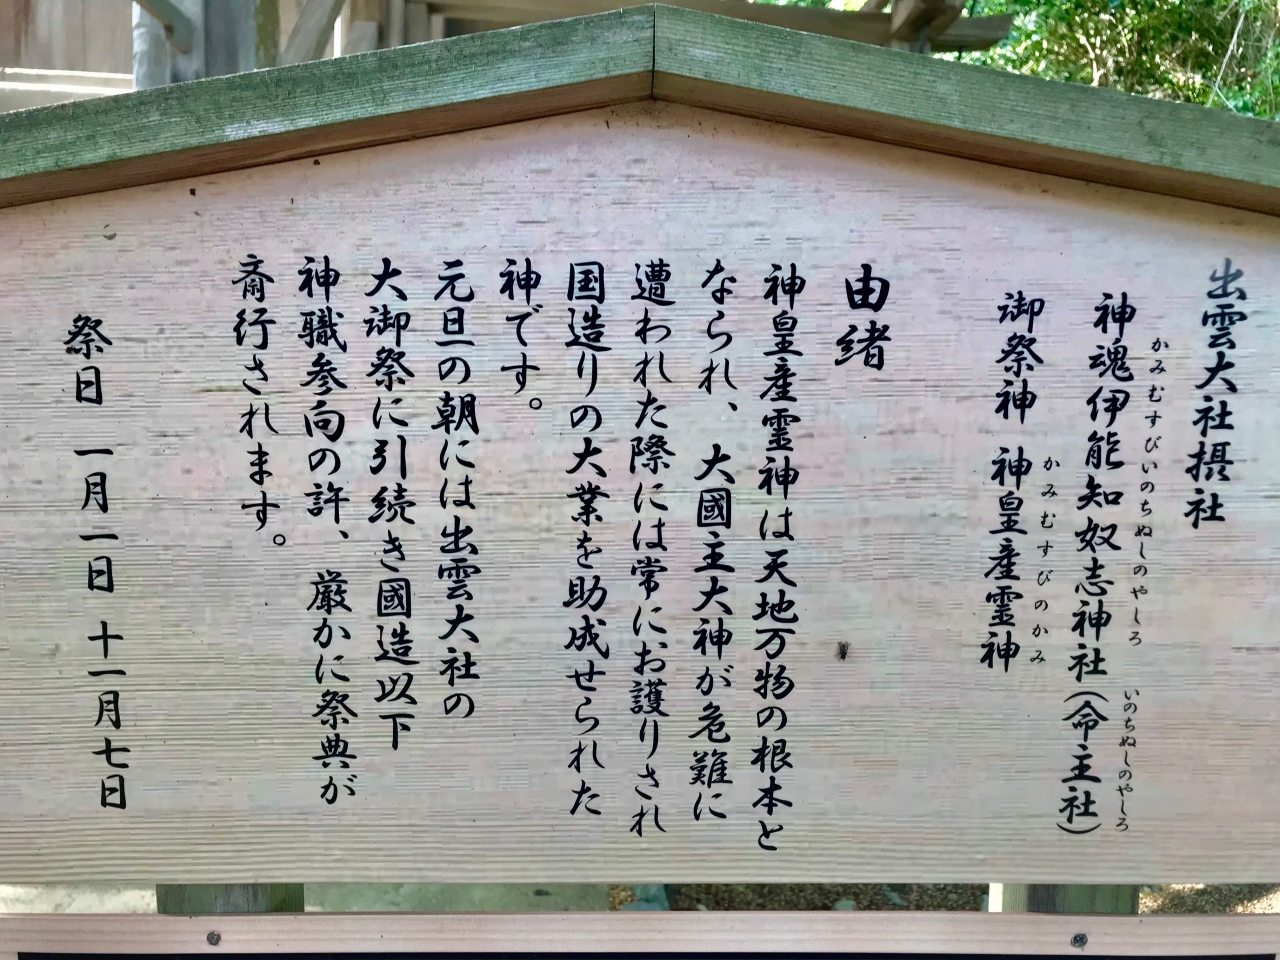 出雲大社摂社
神魂伊能知奴志神社（命主社）
かみむすびいのちぬしのやしろ
いのちぬしのやしろ
御祭神 神皇産霊神
かみむすびのかみ
由緒
神皇産霊神は天地万物の根本と
なられ、大國主大神が危難に
遭われた際には常にお護りされ
国造りの大業を助成せられた
神です。
元旦の朝には出雲大社の
大御祭に引続き國造以下
神職参向の許、厳かに祭典が
斎行されます。
祭日 一月一日 十一月七日